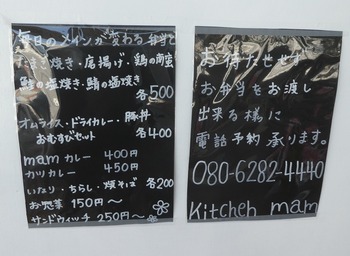 毎日のメインが変わる弁当と
たまご焼き・唐揚げ・鶏の南蛮
鮭の塩焼き・鯖の塩焼き
各500
オムライス・ドライカレー・豚丼
おむすびセット
各400
mam カレー 400円
カツカレー 450円
いなり・ちらし・焼そば 各200
お惣菜 150円〜
サンドウィッチ 250円〜
お待たせせず
お弁当をお渡し
出来る様に
電話予約 承ります。
080-6282-4440
Kitchen mam